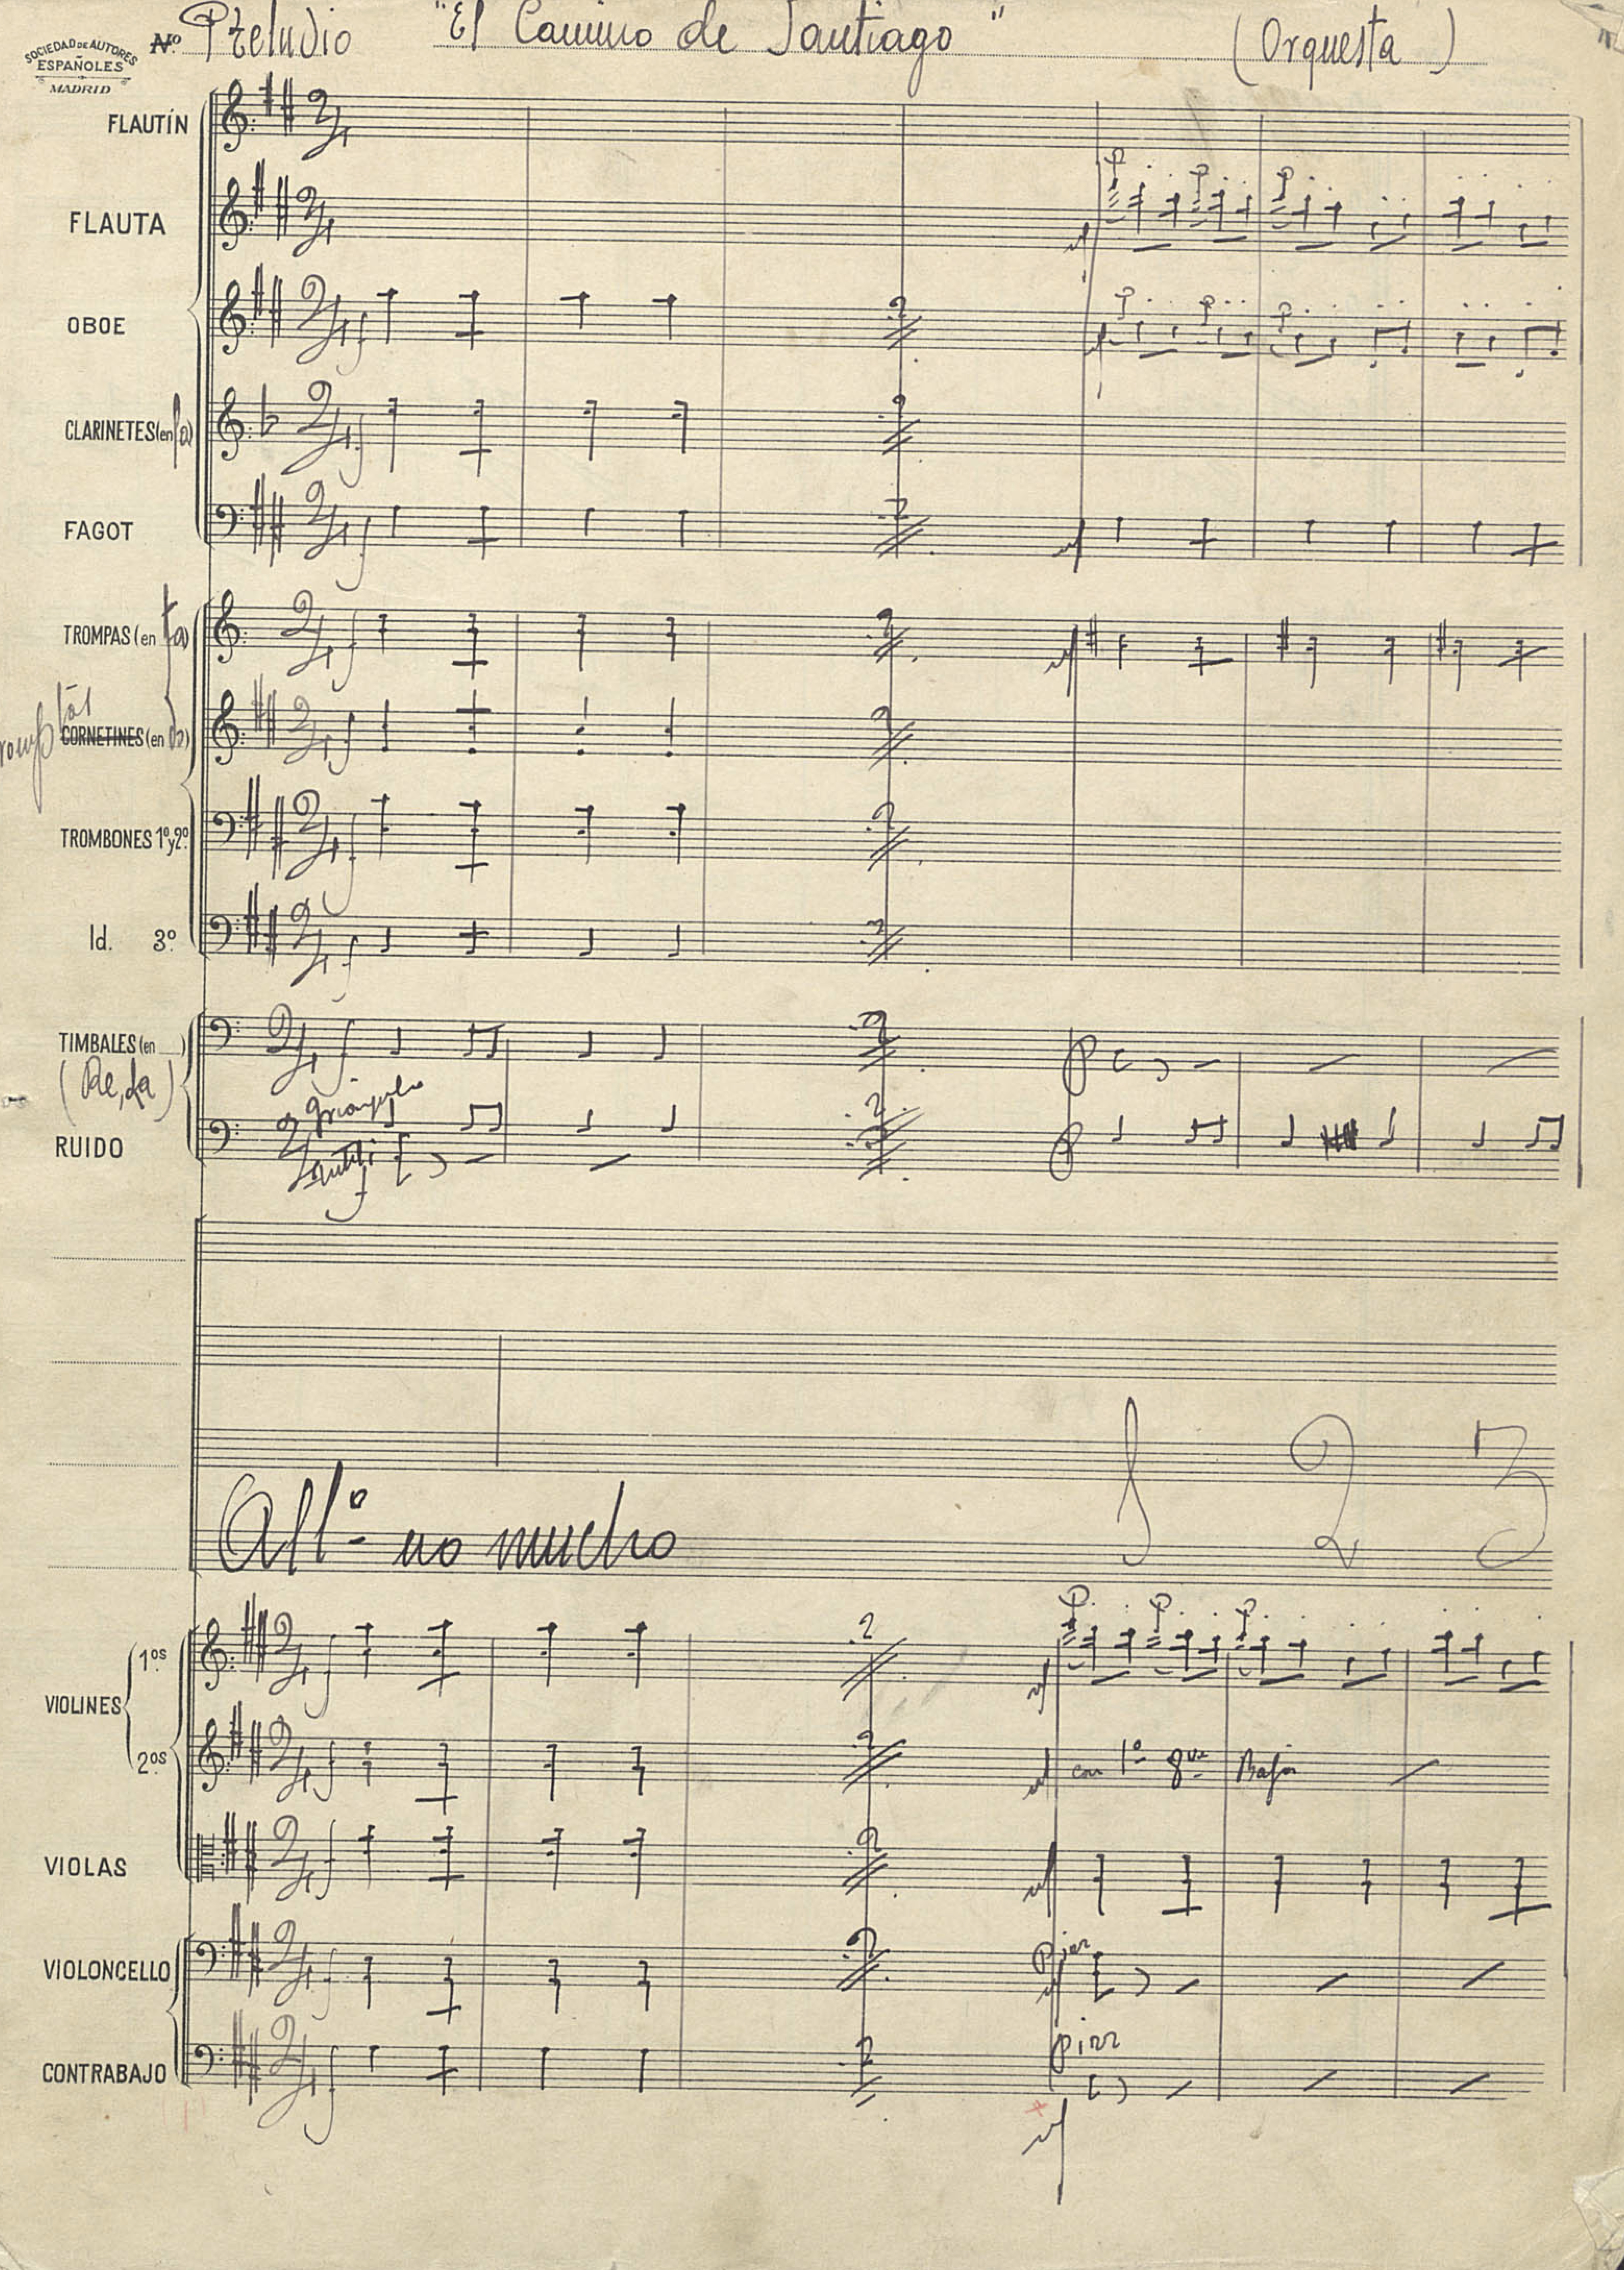 Nº Preludio "El Camino de Santiago" (Orquesta)
SOCIEDAD DE AUTORES
ESPAÑOLES
MADRID
FLAUTÍN
FLAUTA
OBOE
CLARINETES (en la)
FAGOT
TROMPAS (en fa)
Trompetas
CORNETINES (en do)
TROMBONES 1º y 2º
Id. 3º
TIMBALES (en )
(Re, La)
RUIDO
Triángulo
1 2 3
All.º no mucho
VIOLINES
1ºs
2ºs
con 1º 8va Baja
VIOLAS
VIOLONCELLO
CONTRABAJO
pizz